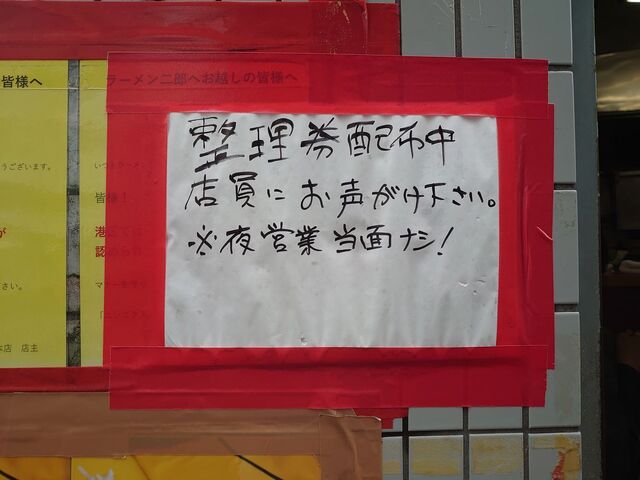 整理券配布中
店員にお声がけ下さい。
※夜営業当面ナシ!
ラーメン二郎へお越しの皆様へ
皆様へ
うございます。
いつもラーメン
皆様!
が
さい。
本店 店主